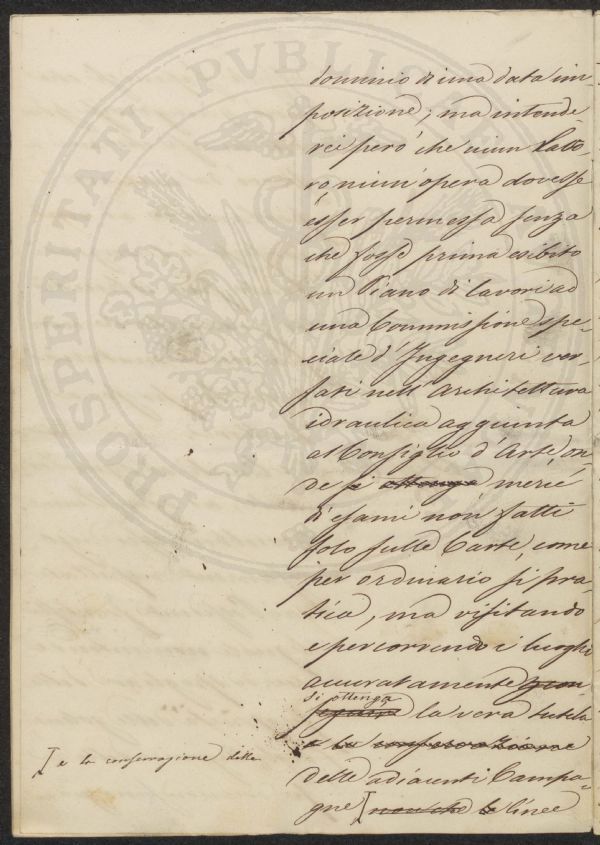 dominio di una data im-
posizione; ma intende-
rei però che niun Latto-
ro niun' opera dovesse
esser permessa senza
che fosse prima esibito
un Piano di lavori ad
una Commissione spe-
ciale d'Ingegneri ver-
sati nell'Architettura
idraulica aggiunta
al Consiglio d'Arte on-
de si ottenga mercè
d'esami non fatti
solo sulle Carte, come
per ordinario si pra-
tica, ma visitando
e percorrendo i luoghi
accuratamente
si ottenga
la vera tutela
e la conservazione
e la conservazione delle
delle adiacenti Campa-
gne nonchè le linee
PROSPERITATI PVBLICAE